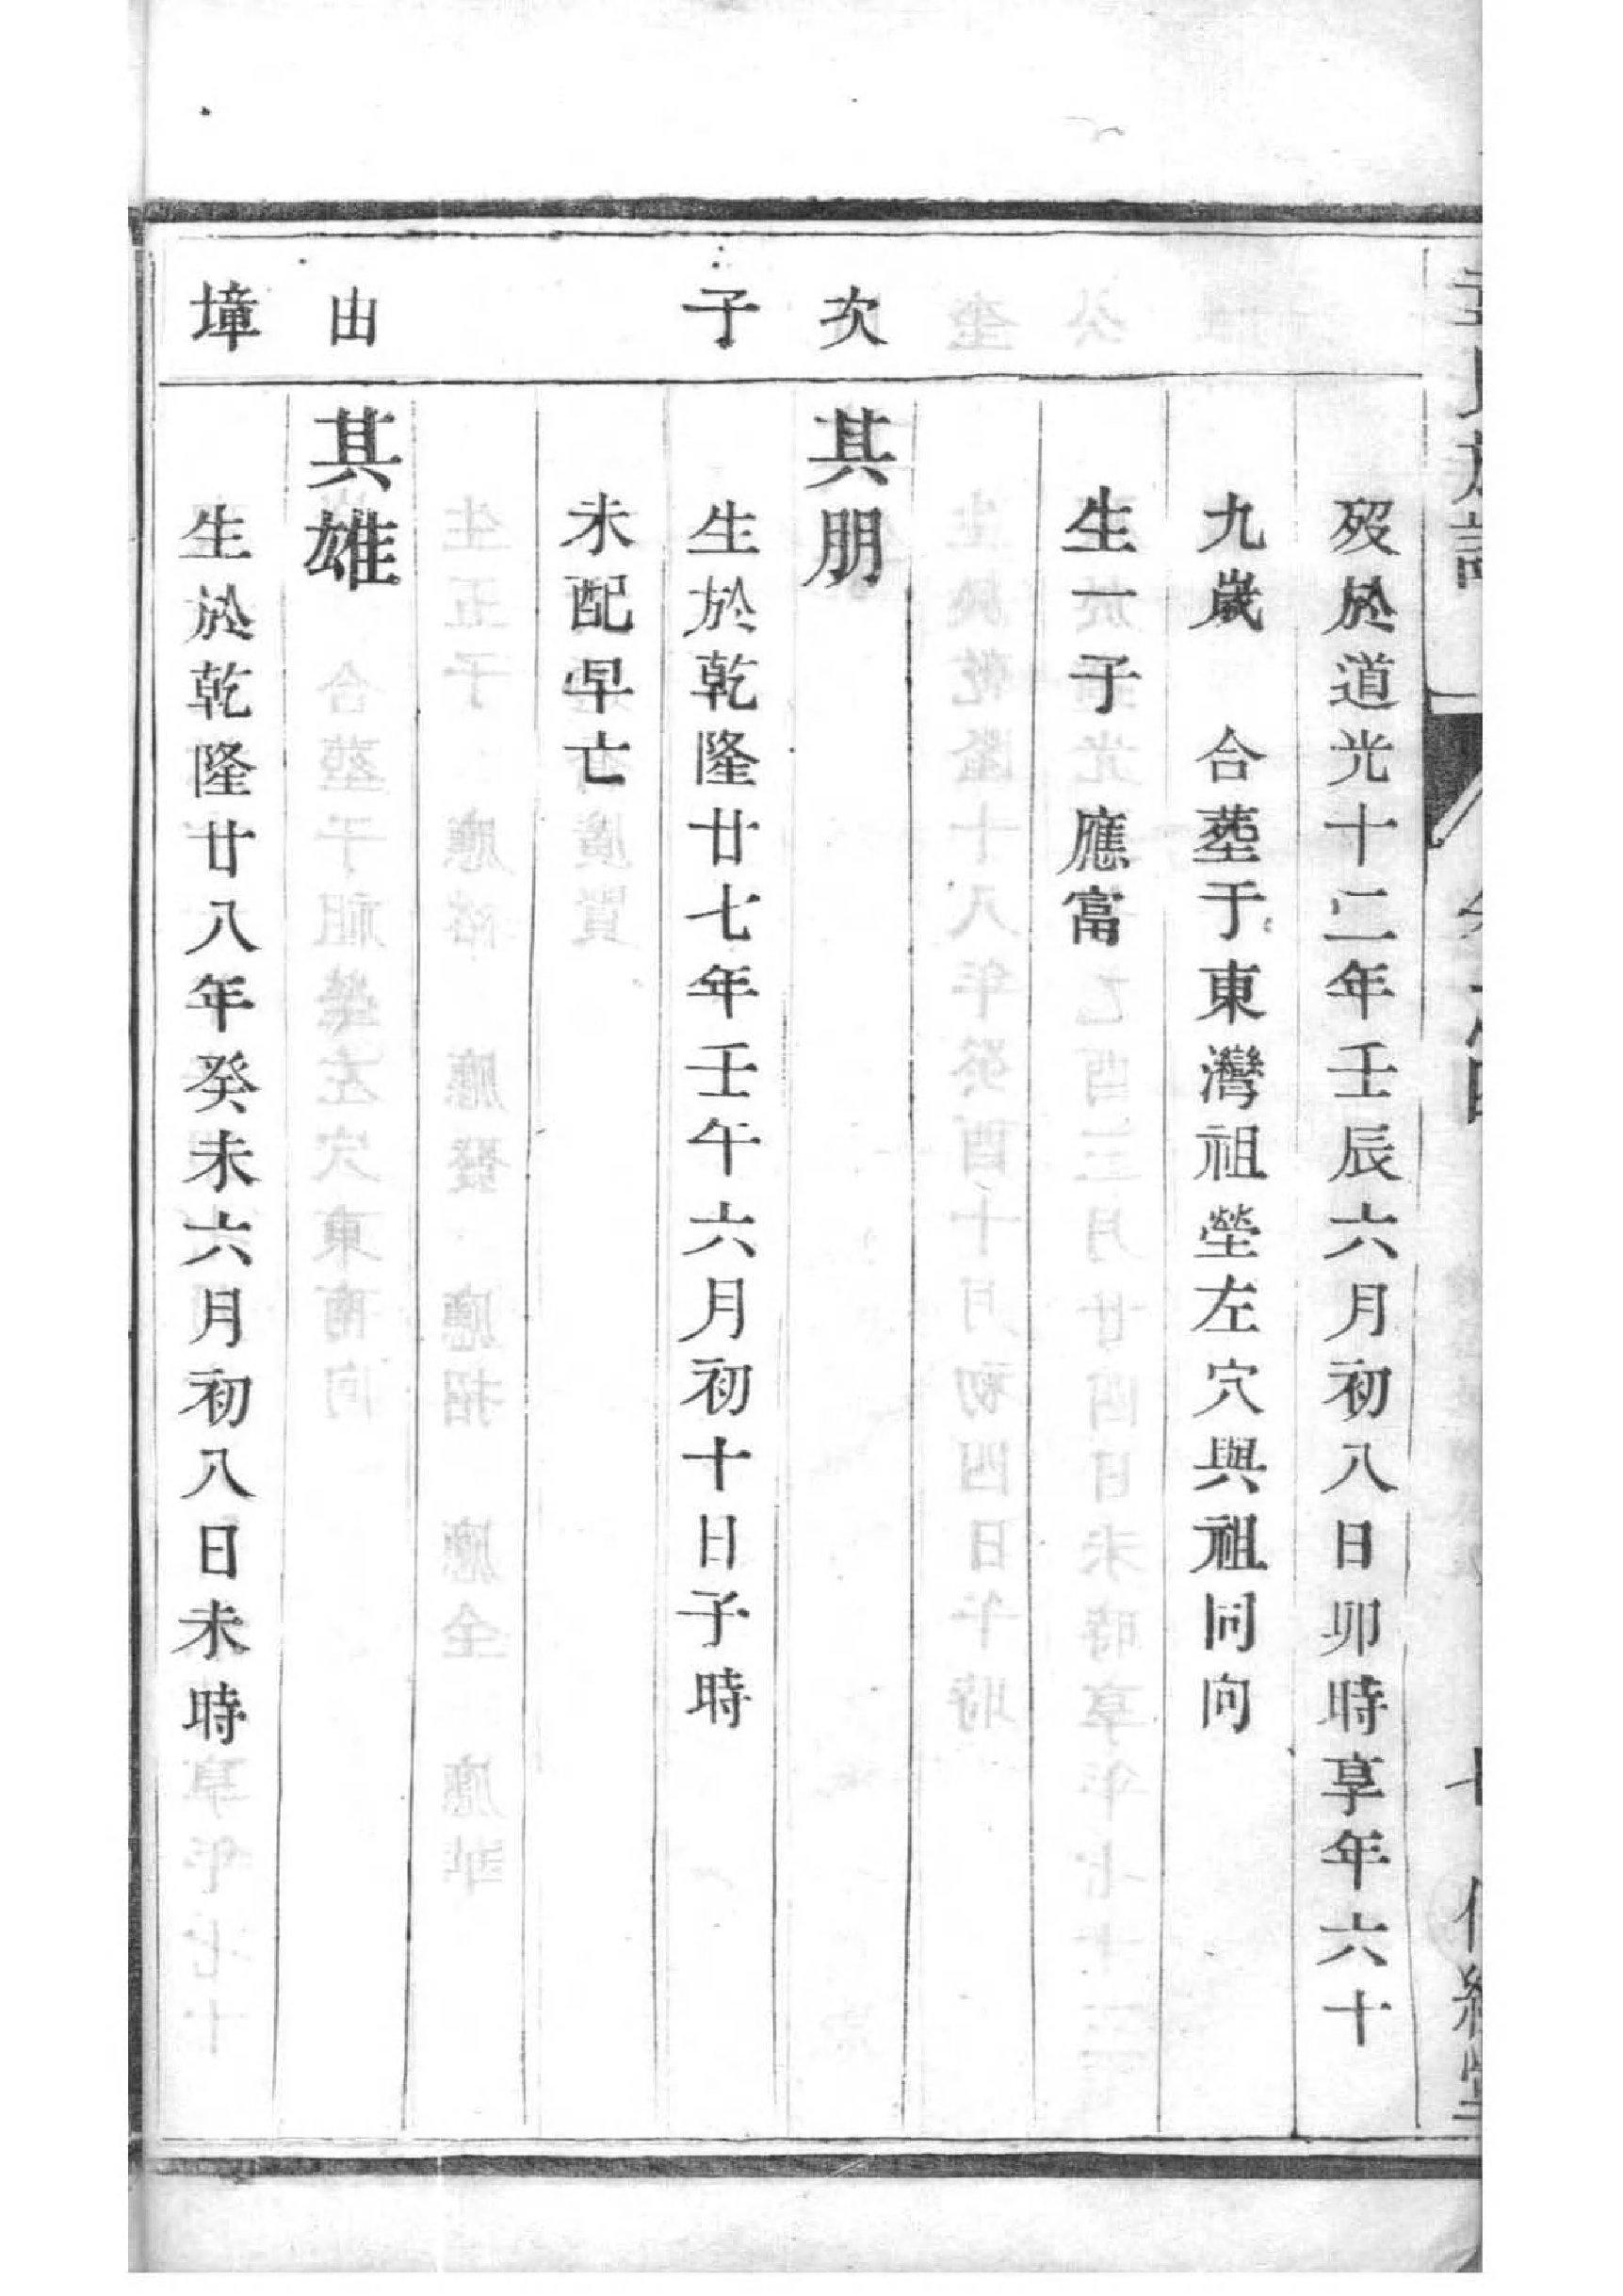 歿於道光十二年壬辰六月初八日卯時享年六十
九歲 合塟于東灣祖塋左穴與祖同向
生一子 應富
次
其朋
子
生於乾隆廿七年壬午六月初十日子時
未配早亡
由
其雄
墇
生於乾隆廿八年癸未六月初八日未時